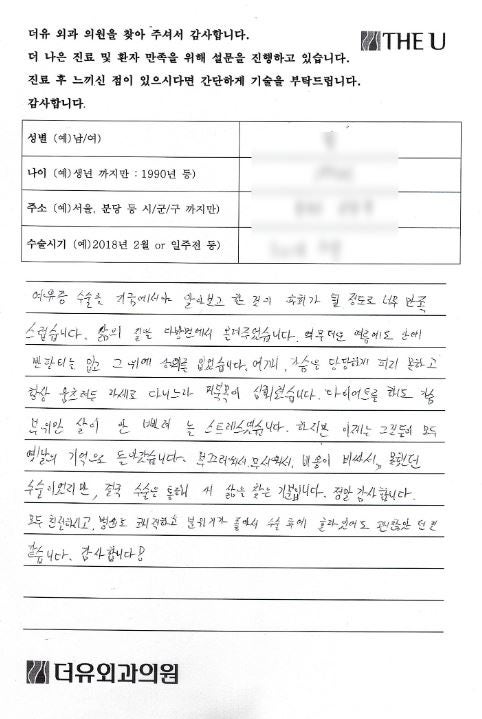 더유 외과 의원을 찾아 주셔서 감사합니다.
THE U
더 나은 진료 및 환자 만족을 위해 설문을 진행하고 있습니다.
진료 후 느끼신 점이 있으시다면 간단하게 기술을 부탁드립니다.
감사합니다.
성별 (예)남/여)
나이 (예)생년 까지만 : 1990년 등)
주소 (예)서울, 분당 등 시/군/구 까지만)
수술시기 (예)2018년 2월 or 일주전 등)
여유증 수술을 지금에서야 알아보고 한 것이 후회가 될 정도로 너무 만족
스럽습니다. 삶의 질을 다방면에서 올려주었습니다. 여름에도 안에
반팔티를 입고 그 위에 상의를 입었습니다. 어깨, 가슴을 당당하게 펴지 못하고
항상 움츠려든 자세로 다니느라 거북목이 심해졌습니다. 다이어트를 해도 가슴
부위만 살이 안 빠져 늘 스트레스였습니다. 하지만 이제는 그것들이 모두
옛날의 기억으로 남았습니다. 부끄러워서, 무서워서, 비용이 비싸서, 못했던
수술이었지만, 결국 수술을 통해 새 삶을 찾은 기분입니다. 정말 감사합니다.
모두 친절하시고, 병원도 쾌적하고 분위기가 좋아서 수술 후에 올라있어도 괜찮았던 것
같습니다. 감사합니다!
더유외과의원